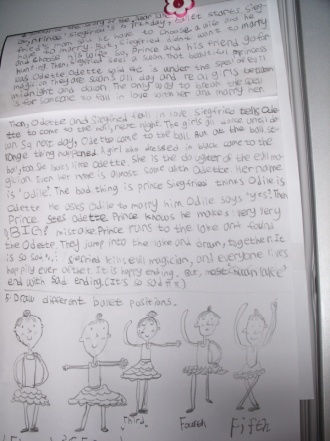 day. Prince Siegfried is
mom. He have to choose a wife and he
have to marry. But Siegfried didn't want to marry
and choose 's wife. So, Prince and his friend go for
hunting. Then Siegfried sees a swan that beautiful princess
was Odette. Odette said she is under the spell of evil
magician. They are swans all day and real girls between
midnight and dawn. The only way to break the spell
is for someone to fall in love with her and marry her.
Then, Odette and Siegfried fall in love. Siegfried tells Ode-
tte to come to the ball, next night. The girls are alive until da-
wn. So next day, Odette come to the ball. But at the ball st-
range thing happened. A girl who dressed in black come to the
ball, too. She looks like Odette. She is the daughter of the evil ma-
gician. Even her name is almost same with Odette. Her name
is 'odile'. The bad thing is prince Siegfried thinks Odile is
Odette. He asks Odile to marry him. Odile says 'yes'! Then
Prince sees Odette. Prince knows he makes very very
BIG! mistake. Prince runs to the lake and found
the Odette. They jump into the lake and drown, together. It
is so sad
Siegfried kills evil magician, and everyone lives
happily ever after. It is happy ending. But, most 'swan lake'
end with sad ending. (It is so sad π.π)
8. Draw different ballet positions.
Third
Fourth
Fifth